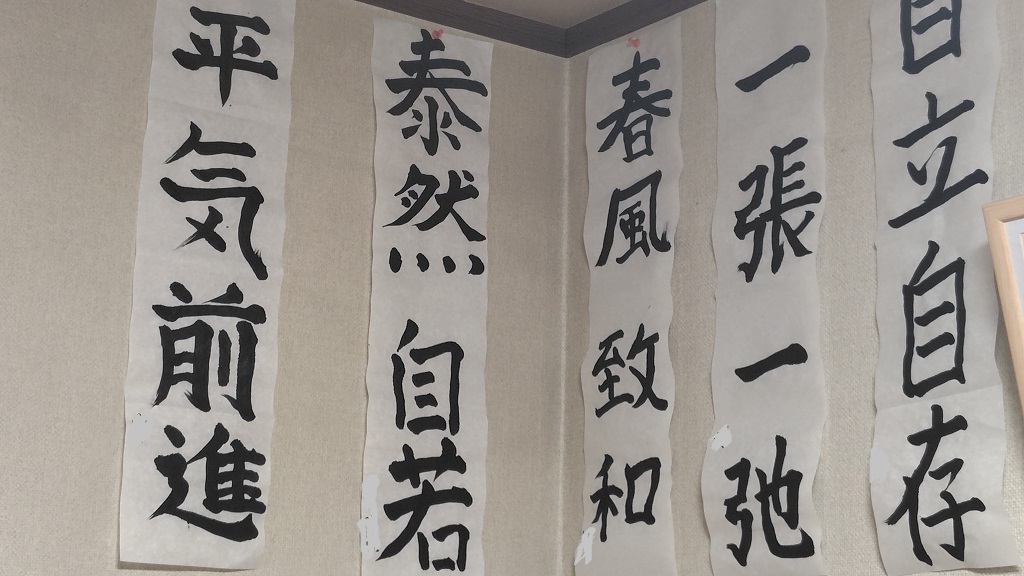 自立自存
一張一弛
春風致和
泰然自若
平気前進